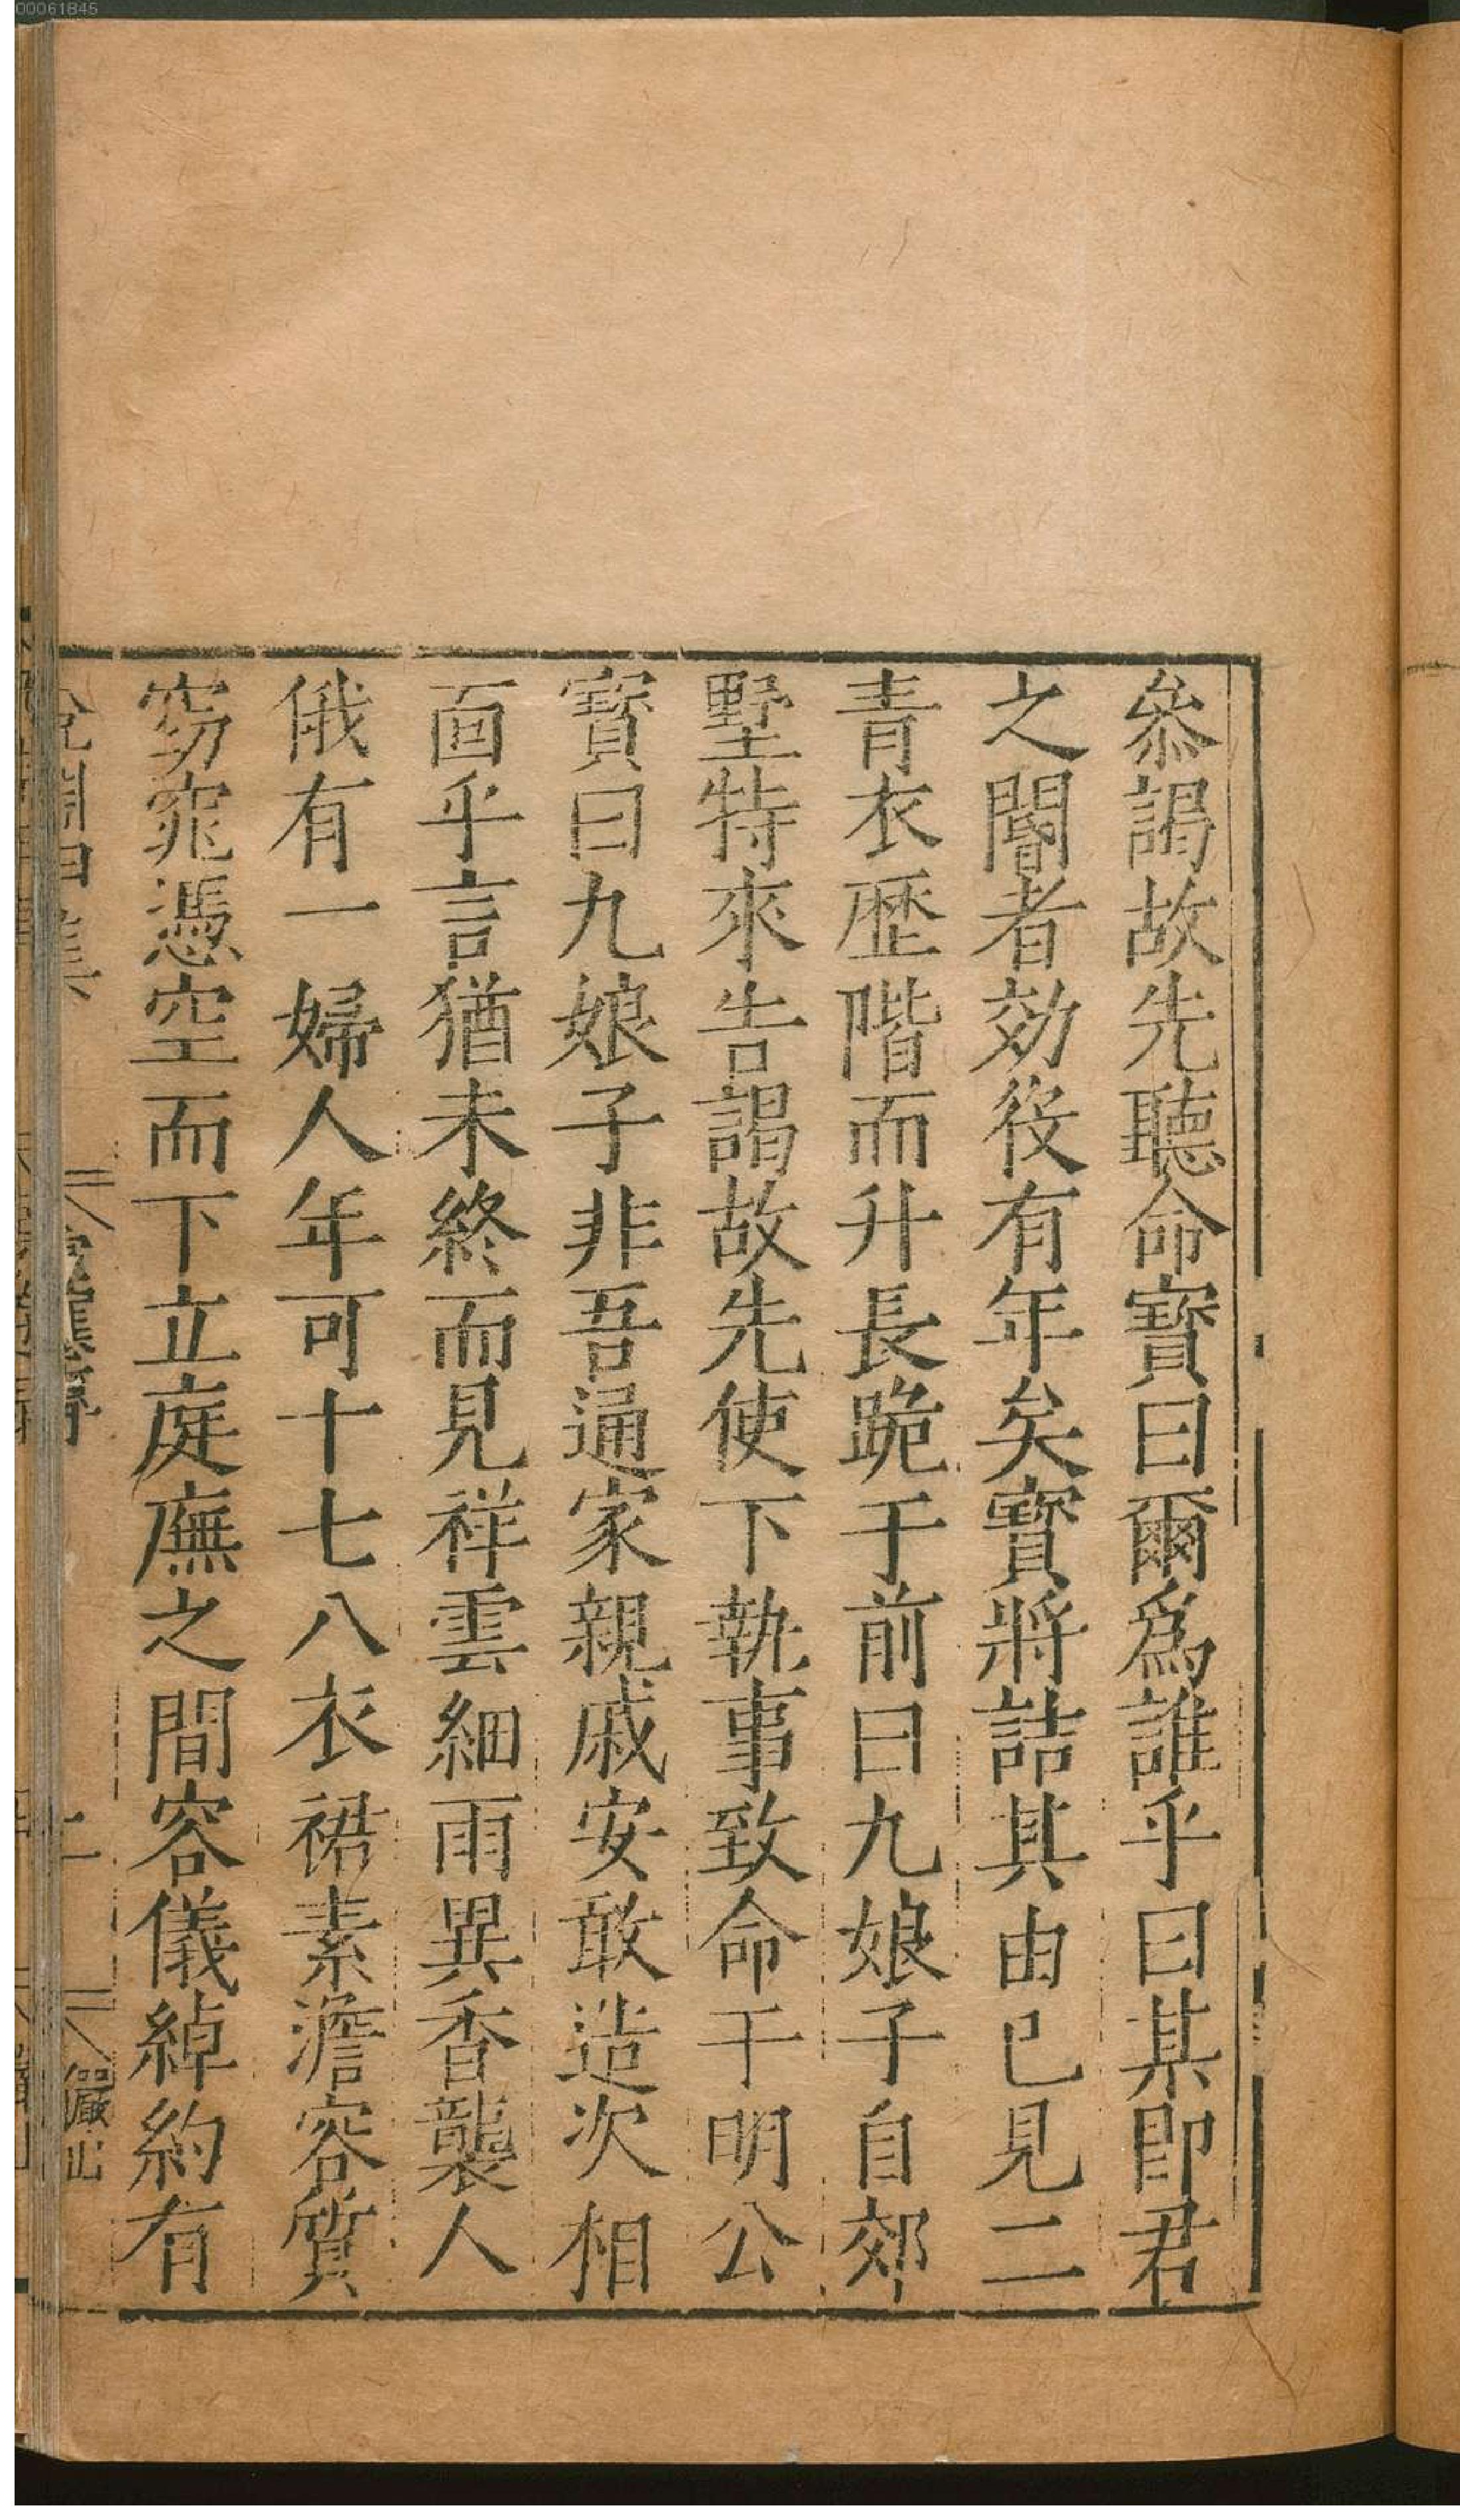 00061845
叅謁故先聽命寳曰爾爲誰乎曰某卽君
之閽者効役有年矣寳將詰其由已見二
青衣歷階而升長跪于前曰九娘子自郊
墅特來告謁故先使下執事致命于明公
寳曰九娘子非吾通家親戚安敢造次相
面乎言猶未終而見祥雲細雨異香襲人
俄有一婦人年可十七八衣裙素澹容質
窈窕憑空而下立庭廡之間容儀綽約有